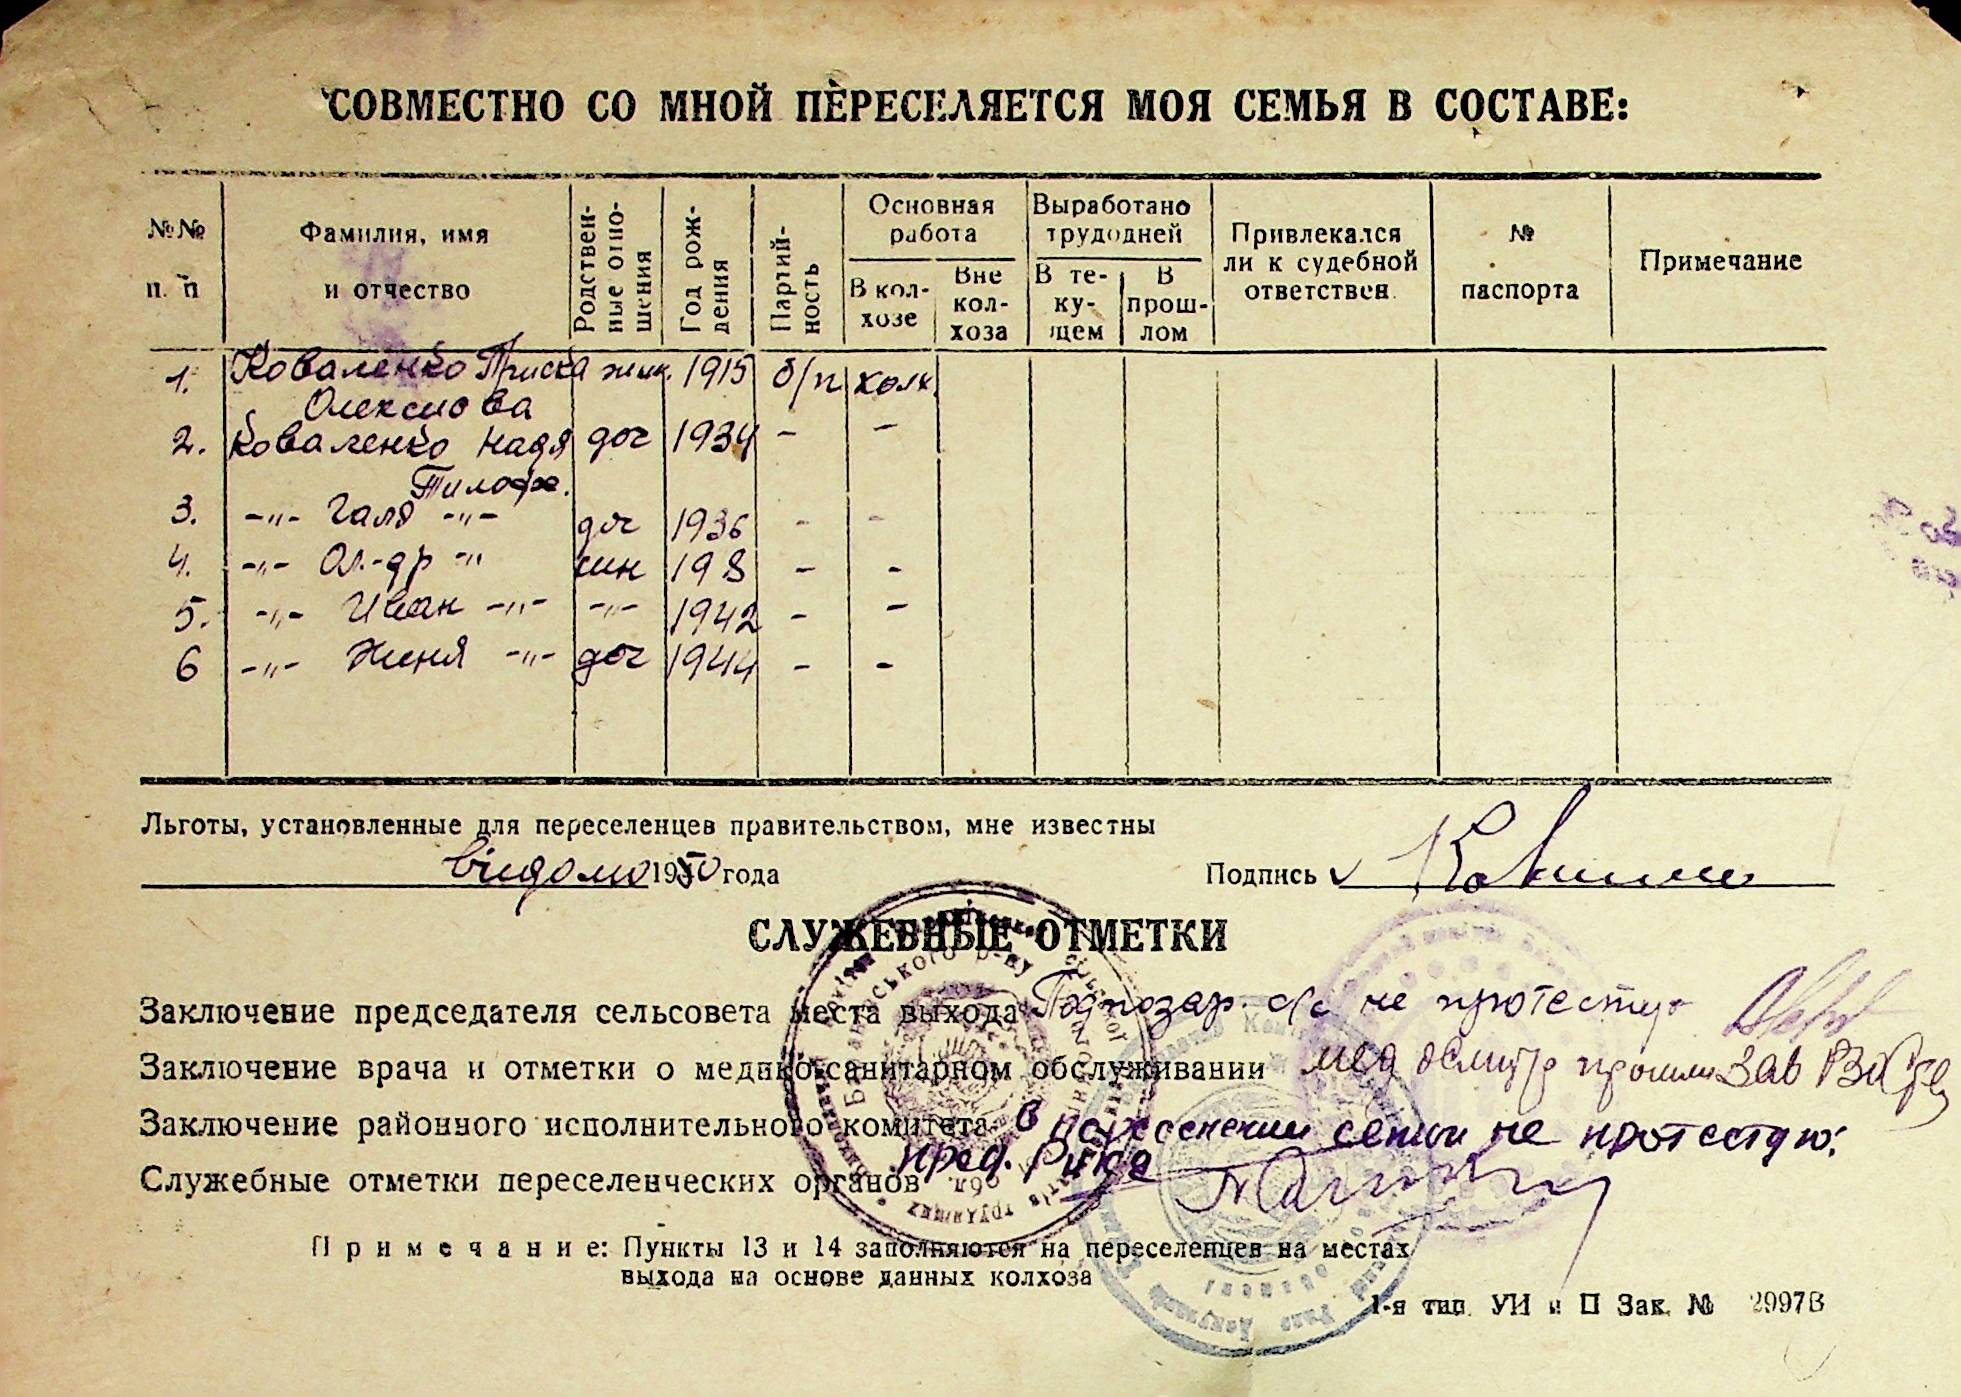 СОВМЕСТНО СО МНОЙ ПЕРЕСЕЛЯЕТСЯ МОЯ СЕМЬЯ В СОСТАВЕ:
№№ п. п
Фамилия, имя и отчество
Родственные отношения
Год рождения
Партийность
Основная работа
В колхозе
Вне колхоза
Выработано трудодней
В текущем
В прошлом
Привлекался ли к судебной ответствен.
№ паспорта
Примечание
1. Коваленко Приска жин. 1915 б/п колх.
Олексиова
2. Коваленко Надя доч 1934 - -
Тимоф.
3. -"- Галя -"- доч 1936 - -
4. -"- Ол-др -"- син 198 - -
5. -"- Иван -"- -"- 1942 - -
6 -"- Женя -"- доч 1944 - -
Льготы, установленные для переселенцев правительством, мне известны
відомо 1950 года Подпись
СЛУЖЕБНЫЕ ОТМЕТКИ
Заключение председателя сельсовета места выхода с/с не протестую
Заключение врача и отметки о медико-санитарном обслуживании мед осмотр прошли Зав
Заключение районного исполнительного комитета В переселении семьи не протестую:
пред. Рика
Служебные отметки переселенческих органов
Примечание: Пункты 13 и 14 заполняются на переселенцев на местах
выхода на основе данных колхоза
1-я тип. УИ и П Зак. № 2997В